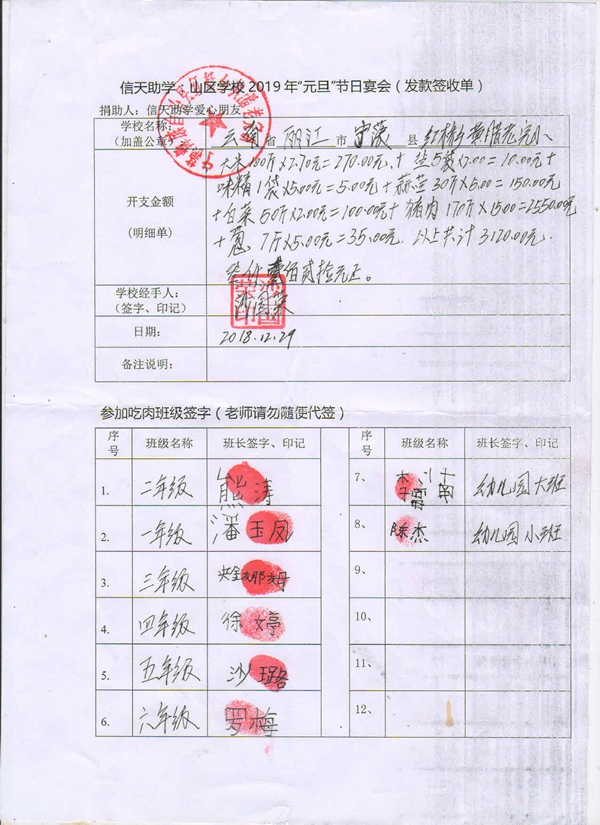 信天助学·山区学校2019年“元旦”节日宴会（发款签收单）
捐助人：信天助学爱心朋友
学校名称： 云南省 丽江 市 宁蒗 县 红桥乡黄腊老完小
（加盖公章）
大米100斤×2.70元=270.00元，+盐5袋×2.00=10.00元+
开支金额 味精1袋×5.00元=5.00元+蒜苔30斤×5.00=150.00元
（明细单） +白菜50斤×2.00=100.00元+猪肉170斤×15.00=2550.00元
+葱7斤×5.00元=35.00元.以上共计3120.00元.
壹佰贰拾元正。
学校经手人：
（签字、印记）
日期： 2018.12.29
备注说明：
参加吃肉班级签字（老师请勿随便代签）
序号 班级名称 班长签字、印记 序号 班级名称 班长签字、印记
1. 二年级 熊涛 7、 幼儿园大班
2. 一年级 潘玉凤 8、 陈杰 幼儿园小班
3. 三年级 9、
4. 四年级 徐婷 10、
5. 五年级 沙璐 11、
6. 六年级 罗梅 12、